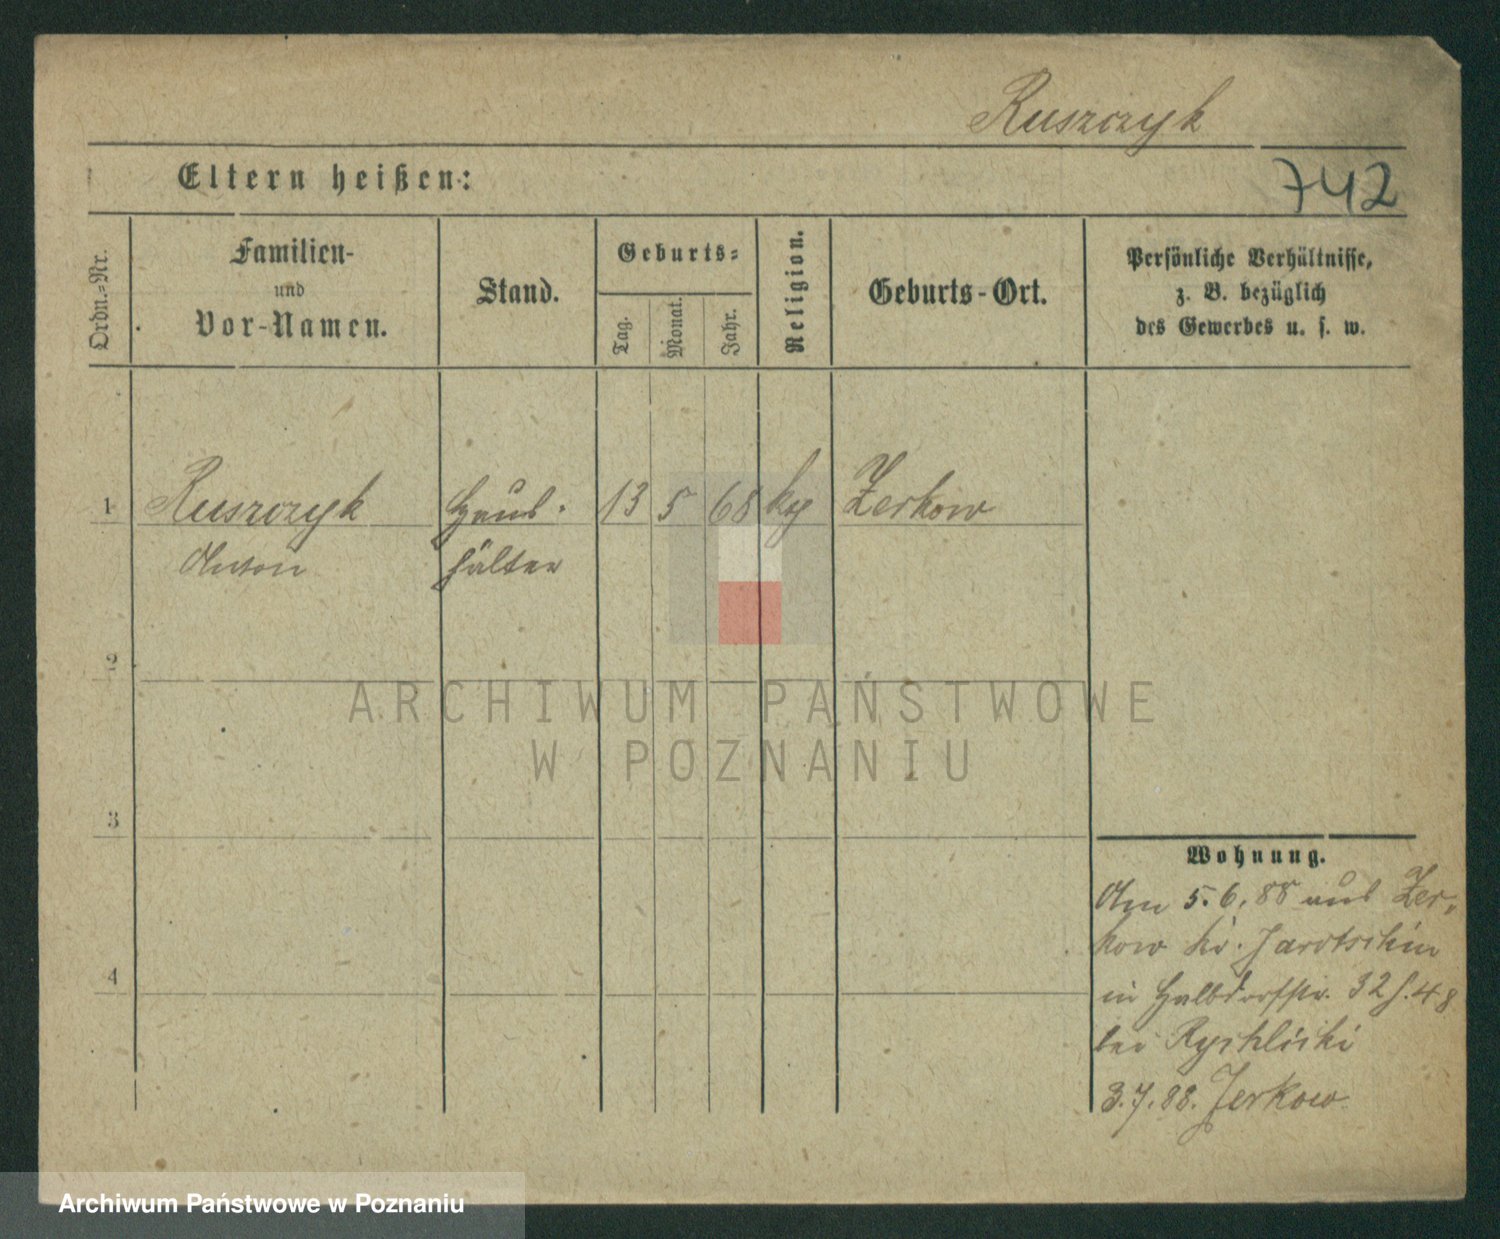 Ruszczyk
Eltern heißen:
742
Ordn.-Nr.
Familien-
und
Vor-Namen.
Stand.
Geburts-
Tag.
Monat.
Jahr.
Religion.
Geburts-Ort.
Persönliche Verhältnisse,
z. B. bezüglich
des Gewerbes u. s. w.
1 Ruszczyk Haus- 13 5 68 kg Zerkow
Anton hälter
2
3
4
ARCHIWUM PAŃSTWOWE
W POZNANIU
Wohnung.
Am 5.6.88 aus Zer-
kow Kr. Jarotschin
in Halbdorfstr. 32
bei Rychlicki
3.7.88. Zerkow
Archiwum Państwowe w Poznaniu